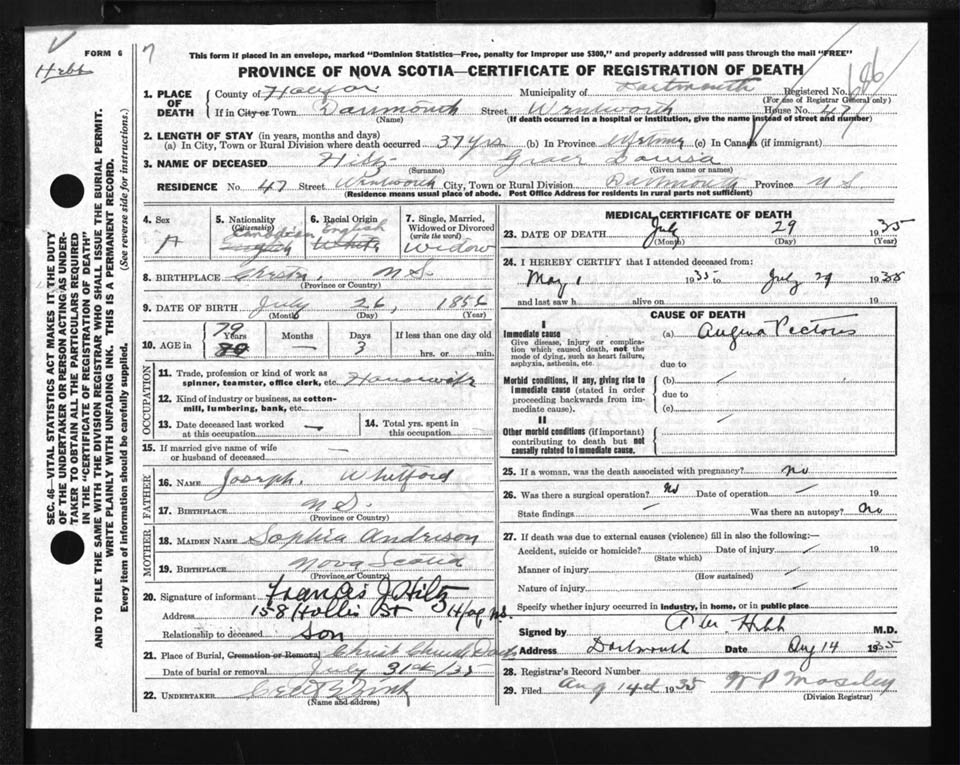 FORM 6
Hebb
7
This form if placed in an envelope, marked "Dominion Statistics—Free, penalty for improper use $300," and properly addressed will pass through the mail "FREE"
PROVINCE OF NOVA SCOTIA—CERTIFICATE OF REGISTRATION OF DEATH
SEC. 46—VITAL STATISTICS ACT MAKES IT THE DUTY
OF THE UNDERTAKER OR PERSON ACTING AS UNDER-
TAKER TO OBTAIN ALL THE PARTICULARS REQUIRED
IN THE "CERTIFICATE OF REGISTRATION OF DEATH"
AND TO FILE THE SAME WITH THE DIVISION REGISTRAR WHO SHALL ISSUE THE BURIAL PERMIT.
WRITE PLAINLY WITH UNFADING INK. THIS IS A PERMANENT RECORD.
Every item of information should be carefully supplied. (See reverse side for instructions.)
1. PLACE OF DEATH
County of Halifax Municipality of Dartmouth Registered No.
(For use of Registrar General only)
If in City or Town Dartmouth Street Wentworth House No. 47
(Name) (If death occurred in a hospital or institution, give the name instead of street and number)
2. LENGTH OF STAY (in years, months and days)
(a) In City, Town or Rural Division where death occurred 37 yrs (b) In Province Lifetime (c) In Canada (if immigrant)
3. NAME OF DECEASED Hiltz Grace Louisa
(Surname) (Given name or names)
RESIDENCE No. 47 Street Wentworth City, Town or Rural Division Dartmouth Province N S
(Residence means usual place of abode. Post Office Address for residents in rural parts not sufficient)
4. Sex
5. Nationality (Citizenship) Canadian English
6. Racial Origin English White
7. Single, Married, Widowed or Divorced (write the word) Widow
8. BIRTHPLACE Chester, N S.
(Province or Country)
9. DATE OF BIRTH July 26, 1856
(Month) (Day) (Year)
10. AGE in 79 Years Months — Days 3 If less than one day old
hrs. or min.
OCCUPATION
11. Trade, profession or kind of work as
spinner, teamster, office clerk, etc. Housewife
12. Kind of industry or business, as cotton-
mill, lumbering, bank, etc.
13. Date deceased last worked
at this occupation —
14. Total yrs. spent in
this occupation
15. If married give name of wife
or husband of deceased —
FATHER
16. NAME Joseph. Whitford
17. BIRTHPLACE N S.
(Province or Country)
MOTHER
18. MAIDEN NAME Sophia Andrison
19. BIRTHPLACE Nova Scotia
(Province or Country)
20. Signature of informant Francis J Hiltz
Address 158 Hollis St Hfx NS
Relationship to deceased Son
21. Place of Burial, Cremation or Removal Christ Church Dart
Date of burial or removal July 31st /35
22. UNDERTAKER
(Name and address)
MEDICAL CERTIFICATE OF DEATH
23. DATE OF DEATH July 29 1935
(Month) (Day) (Year)
24. I HEREBY CERTIFY that I attended deceased from:
May 1 1935 to July 29 1935
and last saw h alive on 19
CAUSE OF DEATH
I
Immediate cause
Give disease, injury or complica-
tion which caused death, not the
mode of dying, such as heart failure,
asphyxia, asthenia, etc.
(a) Angina Pectoris
due to
Morbid conditions, if any, giving rise to
immediate cause (stated in order
proceeding backwards from im-
mediate cause).
(b)
due to
(c)
II
Other morbid conditions (if important)
contributing to death but not
causally related to immediate cause.
25. If a woman, was the death associated with pregnancy? no
26. Was there a surgical operation? No Date of operation 19
State findings Was there an autopsy? no
27. If death was due to external causes (violence) fill in also the following:—
Accident, suicide or homicide? Date of injury 19
(State which)
Manner of injury
(How sustained)
Nature of injury
Specify whether injury occurred in industry, in home, or in public place
Signed by Hebb M.D.
Address Dartmouth Date Aug 14 1935
28. Registrar's Record Number
29. Filed Aug 14th 1935 W P Moseley
(Division Registrar)